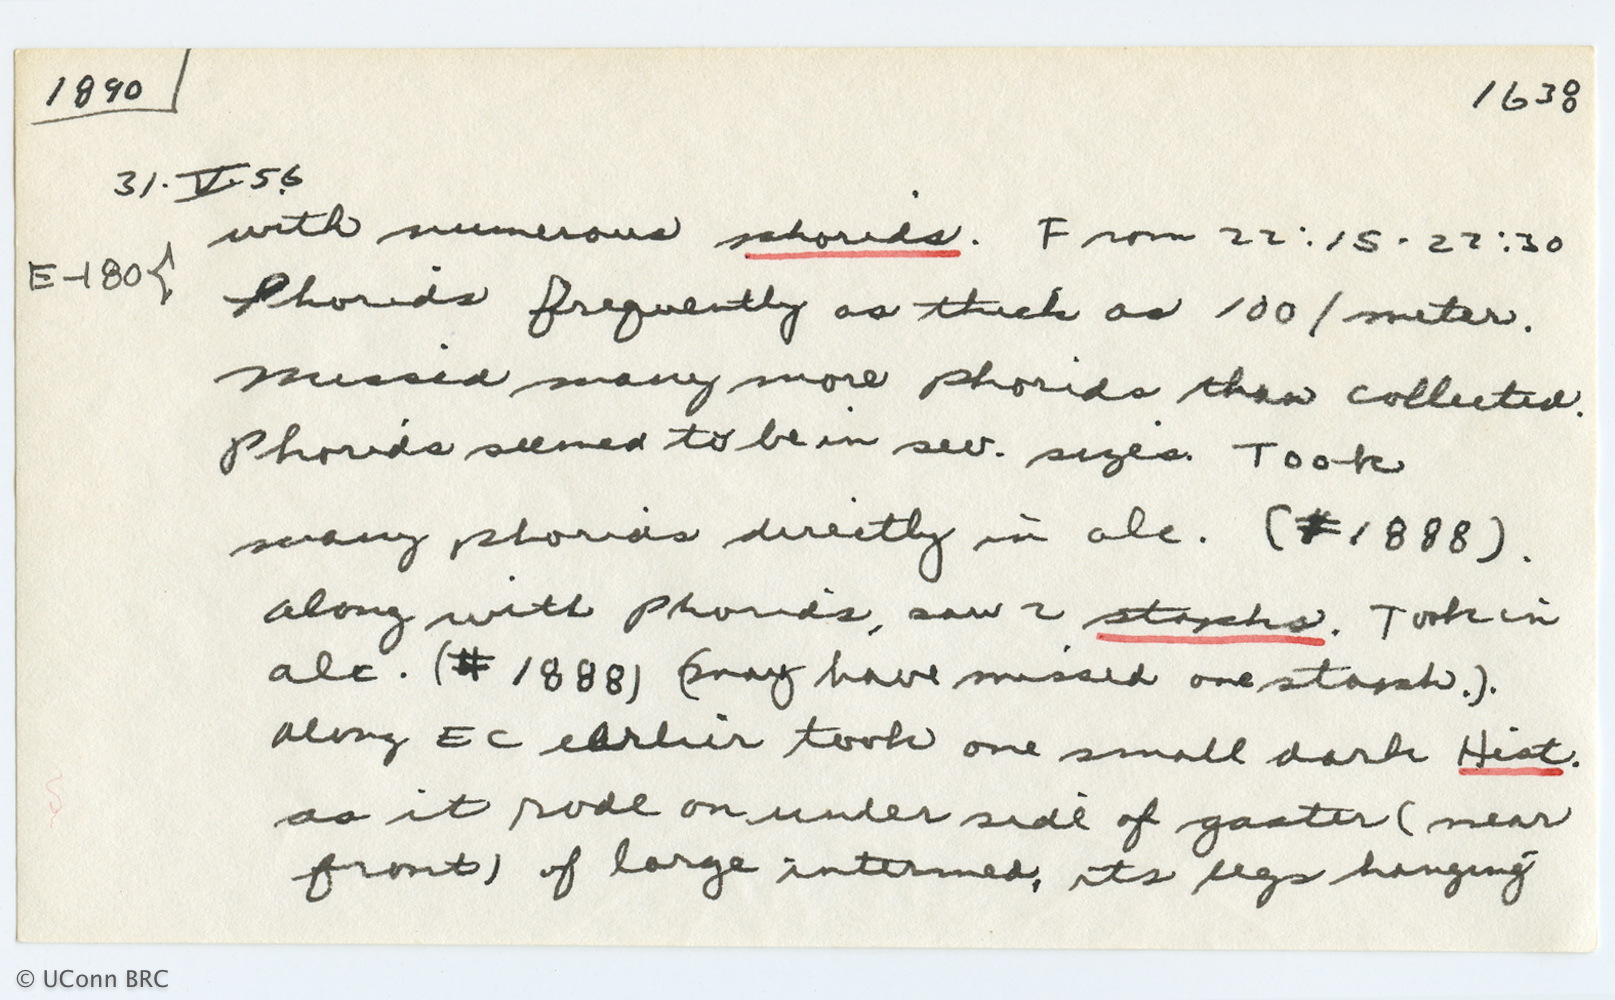 1890
1638
31.V.56
with numerous phorids. From 22:15-22:30
E-180{
Phorids frequently as thick as 100/meter.
Missed many more phorids than collected.
Phorids seemed to be in sev. sizes. Took
many phorids directly in alc. (#1888).
Along with phorids, saw 2 staphs. Took in
alc. (#1888) (may have missed one staph.).
Along EC earlier took one small dark Hist.
as it rode on under side of gaster (near
front) of large intermed, its legs hanging
© UConn BRC